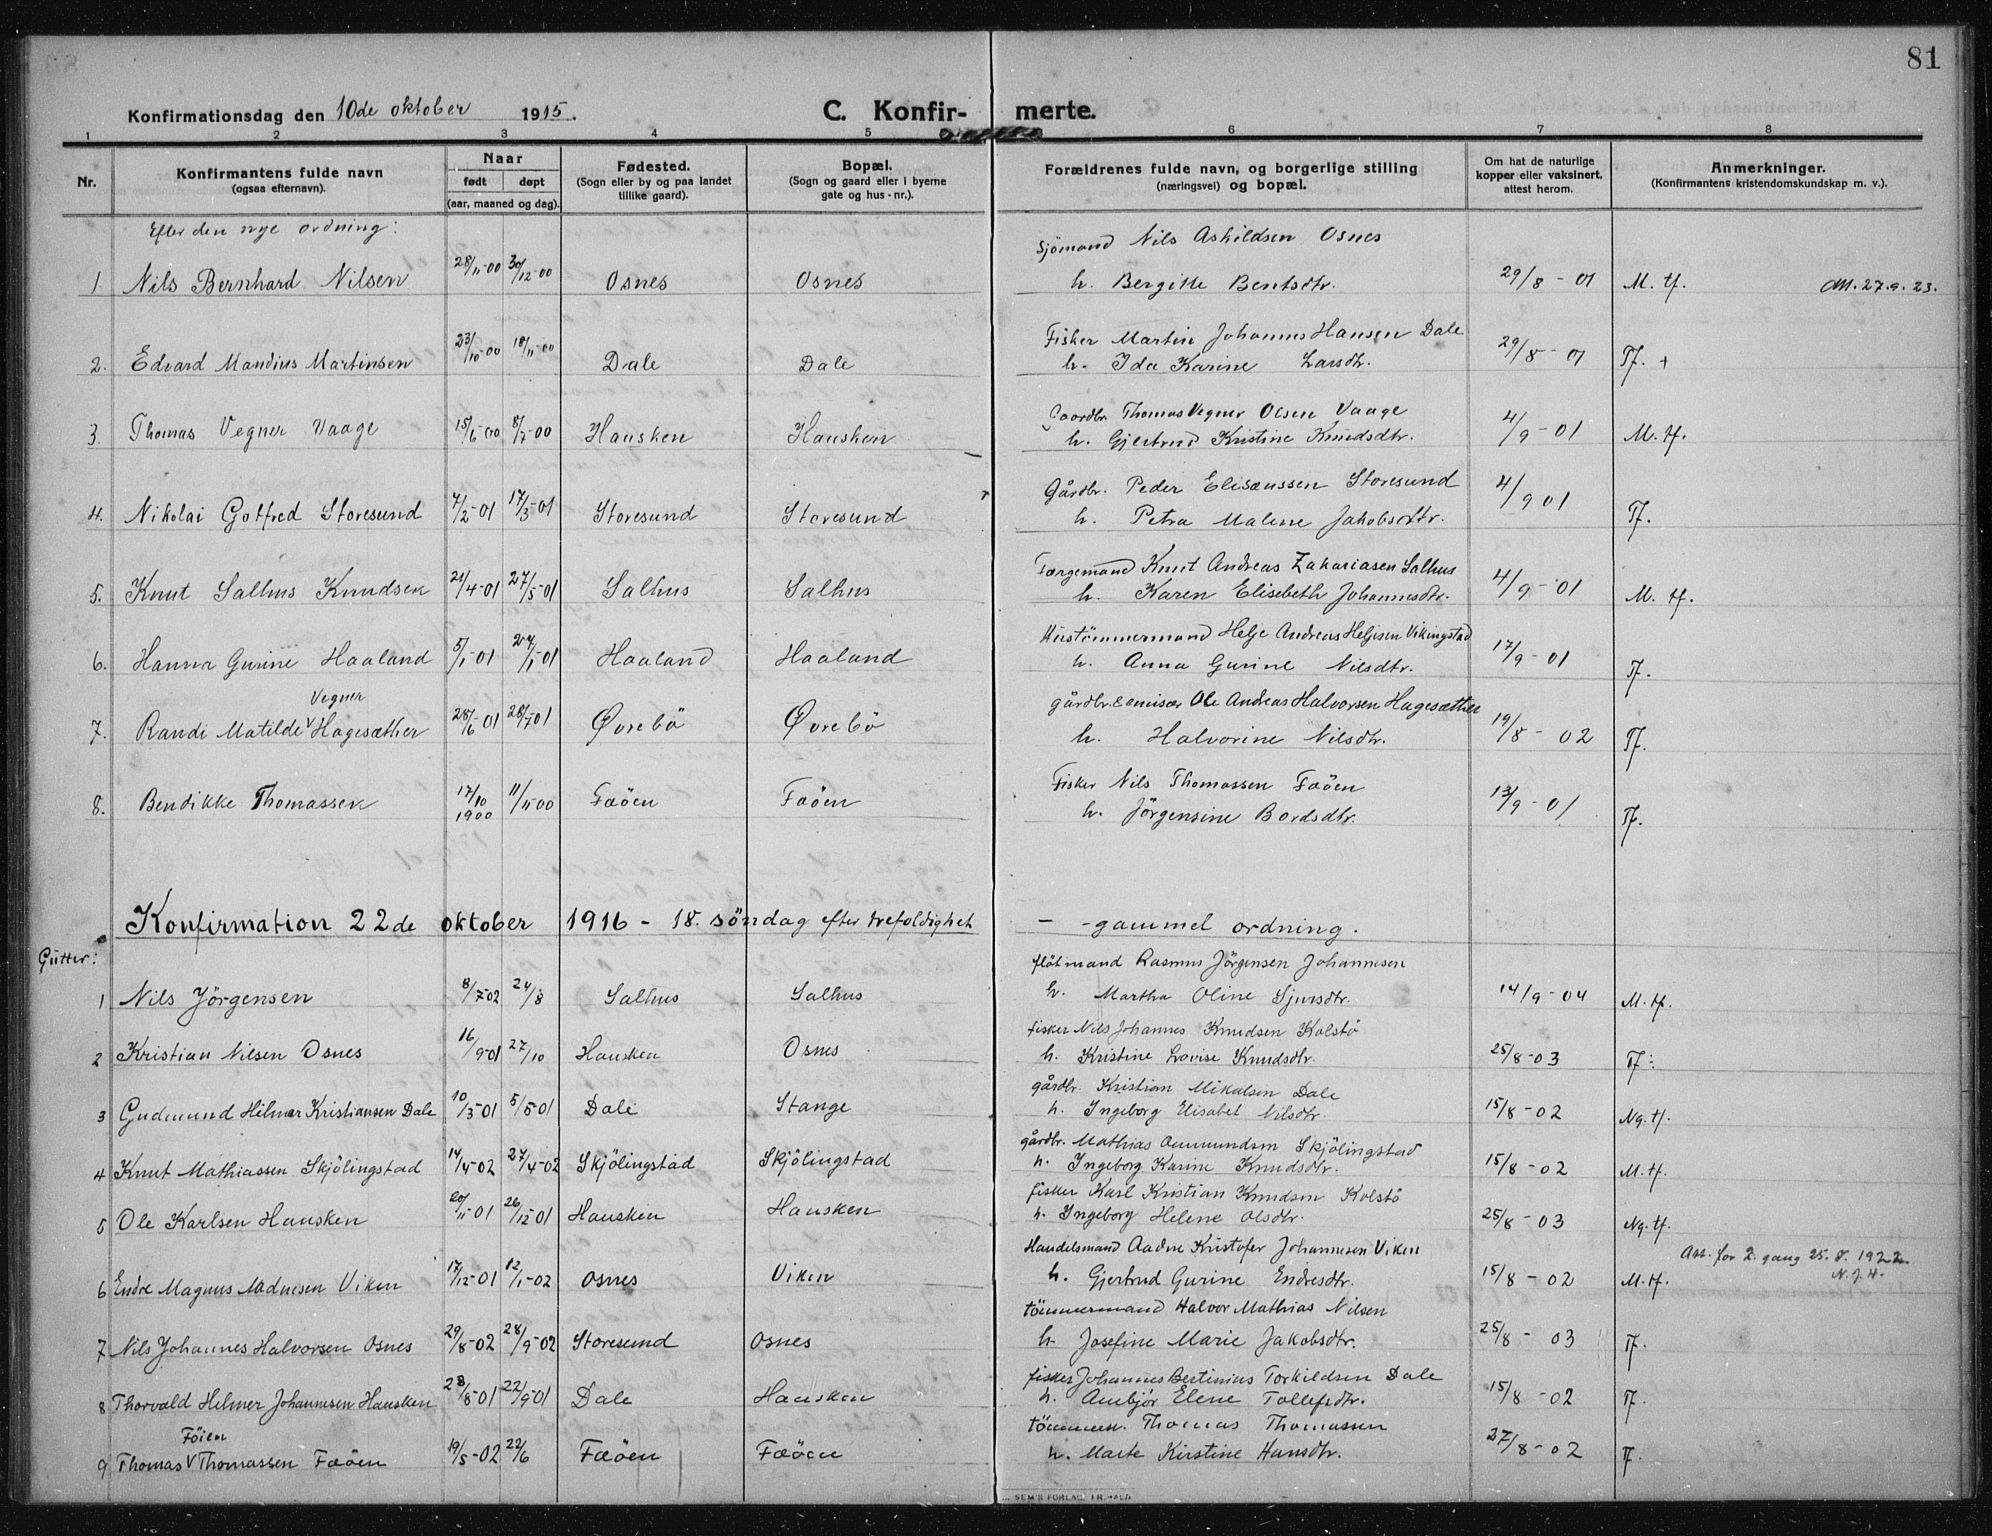 81
Konfirmationsdag den 10de oktober 1915. C. Konfir- merte.
1 2 3 4 5 6 7 8
Nr. Konfirmantens fulde navn (ogsaa efternavn). Naar født døpt (aar, maaned og dag). Fødested. (Sogn eller by og paa landet tillike gaard). Bopæl. (Sogn og gaard eller i byerne gate og hus-nr.). Forældrenes fulde navn, og borgerlige stilling (næringsvei) og bopæl. Om hat de naturlige kopper eller vaksinert, attest herom. Anmerkninger. (Konfirmantens kristendomskundskap m. v.).
Efter den nye ordning:
Sjömand Nils Askildsen Osnes
1. Nils Bernhard Nilsen 28/11-00 30/12-00 Osnes Osnes h. Bergitte Bentsdtr. 29/8-01 M. tf. Att. 27.9.23.
Fisker Martin Johannes Hansen Dale
2. Edvard Mandius Martinsen 23/10-00 18/11-00 Dale Dale h. Ida Karine Larsdtr. 29/8-01 Tf. +
Gaardbr. Thomas Vegner Olsen Vaage
3. Thomas Vegner Vaage 15/6-00 8/7-00 Hausken Hausken h. Gjertrud Kristine Knudsdtr. 4/9-01 M. tf.
Gårdbr. Peder Elisæussen Storesund
4. Nikolai Gotfred Storesund 7/2-01 17/3-01 Storesund Storesund h. Petra Malene Jakobsdtr. 4/9 01 Tf.
Færgemand Knut Andreas Zakariasen Salhus
5. Knut Salhus Knudsen 21/4-01 27/5-01 Salhus Salhus h. Karen Elisebeth Johannesdtr. 4/9-01 M. tf.
Hustömmermand Helje Andreas Heljesen Vikingstad
6. Hanna Gurine Haaland 5/1-01 27/1-01 Haaland Haaland h. Anna Gurine Nilsdtr. 17/9-01 Tf.
Vegner gårdbr. Ole Andreas Halvorsen Hagesæther
7. Randi Matilde v Hagesæther 28/6-01 28/7-01 Øvrebö Øvrebö h. Halvorine Nilsdtr. 19/8-02 Tf.
Fisker Nils Thomassen Fæöen
8. Bendikke Thomassen 17/10 1900 11/11-00 Fæöen Fæöen h. Jörgensine Bordsdtr. 13/9-01 Tf.
Konfirmation 22de oktober 1916 - 18. söndag efter trefoldighet - -gammel ordning.
Gutter:
flötmand Rasmus Jörgensen Johannesen
1 Nils Jörgensen 8/7-02 24/8 Salhus Salhus h. Martha Oline Sjursdtr. 14/9-04 M. tf.
fisker Nils Johannes Knudsen Kolstö
2 Kristian Nilsen Osnes 16/9-01 27/10 Hausken Osnes h. Kristine Lovise Knudsdtr. 25/8-03 Tf.
gårdbr. Kristian Mikalsen Dale
3 Gudmund Hilmar Kristiansen Dale 10/3-01 5/5-01 Dale Stange h. Ingeborg Elisabet Nilsdtr. 15/8-02 Ng. tf.
gårdbr. Mathias Ommundsen Skjölingstad
4 Knut Mathiassen Skjölingstad 14/4-02 27/4-02 Skjölingstad Skjölingstad h. Ingeborg Karine Knudsdtr. 15/8-02 M. tf.
fisker Karl Kristian Knudsen Kolstö
5 Ole Karlsen Hausken 20/11-01 26/12-01 Hausken Hausken h. Ingeborg Helene Olsdtr. 25/8-03 Ng. tf.
Handelsmand Aadne Kristofer Johannesen Viken Att. for 2. gang 25.8.1922. N.J.H.
6 Endre Magnus Adnesen Viken 17/12-01 12/1-02 Osnes Viken h. Gjertrud Gurine Endresdtr. 15/8-02 M. tf.
tömmermand Halvor Mathias Nilsen
7 Nils Johannes Halvorsen Osnes 29/8-02 28/9-02 Storesund Osnes h. Josefine Marie Jakobsdtr. 25/8-03 Tf.
fisker Johannes Bertinius Torkildsen Dale
8 Thorvald Helmer Johannesen Hausken 28/8-01 22/9-01 Dale Hausken h. Ambjör Elene Tollefsdtr. 15/8-02 Tf.
Föien tömmerm. Thomas Thomassen
9 Thomas v Thomassen Fæöen 19/5-02 22/6 Fæöen Fæöen h. Marte Kirstine Hansdtr. 27/8-02 Tf.
SEM'S FORLAG, FR.HALD